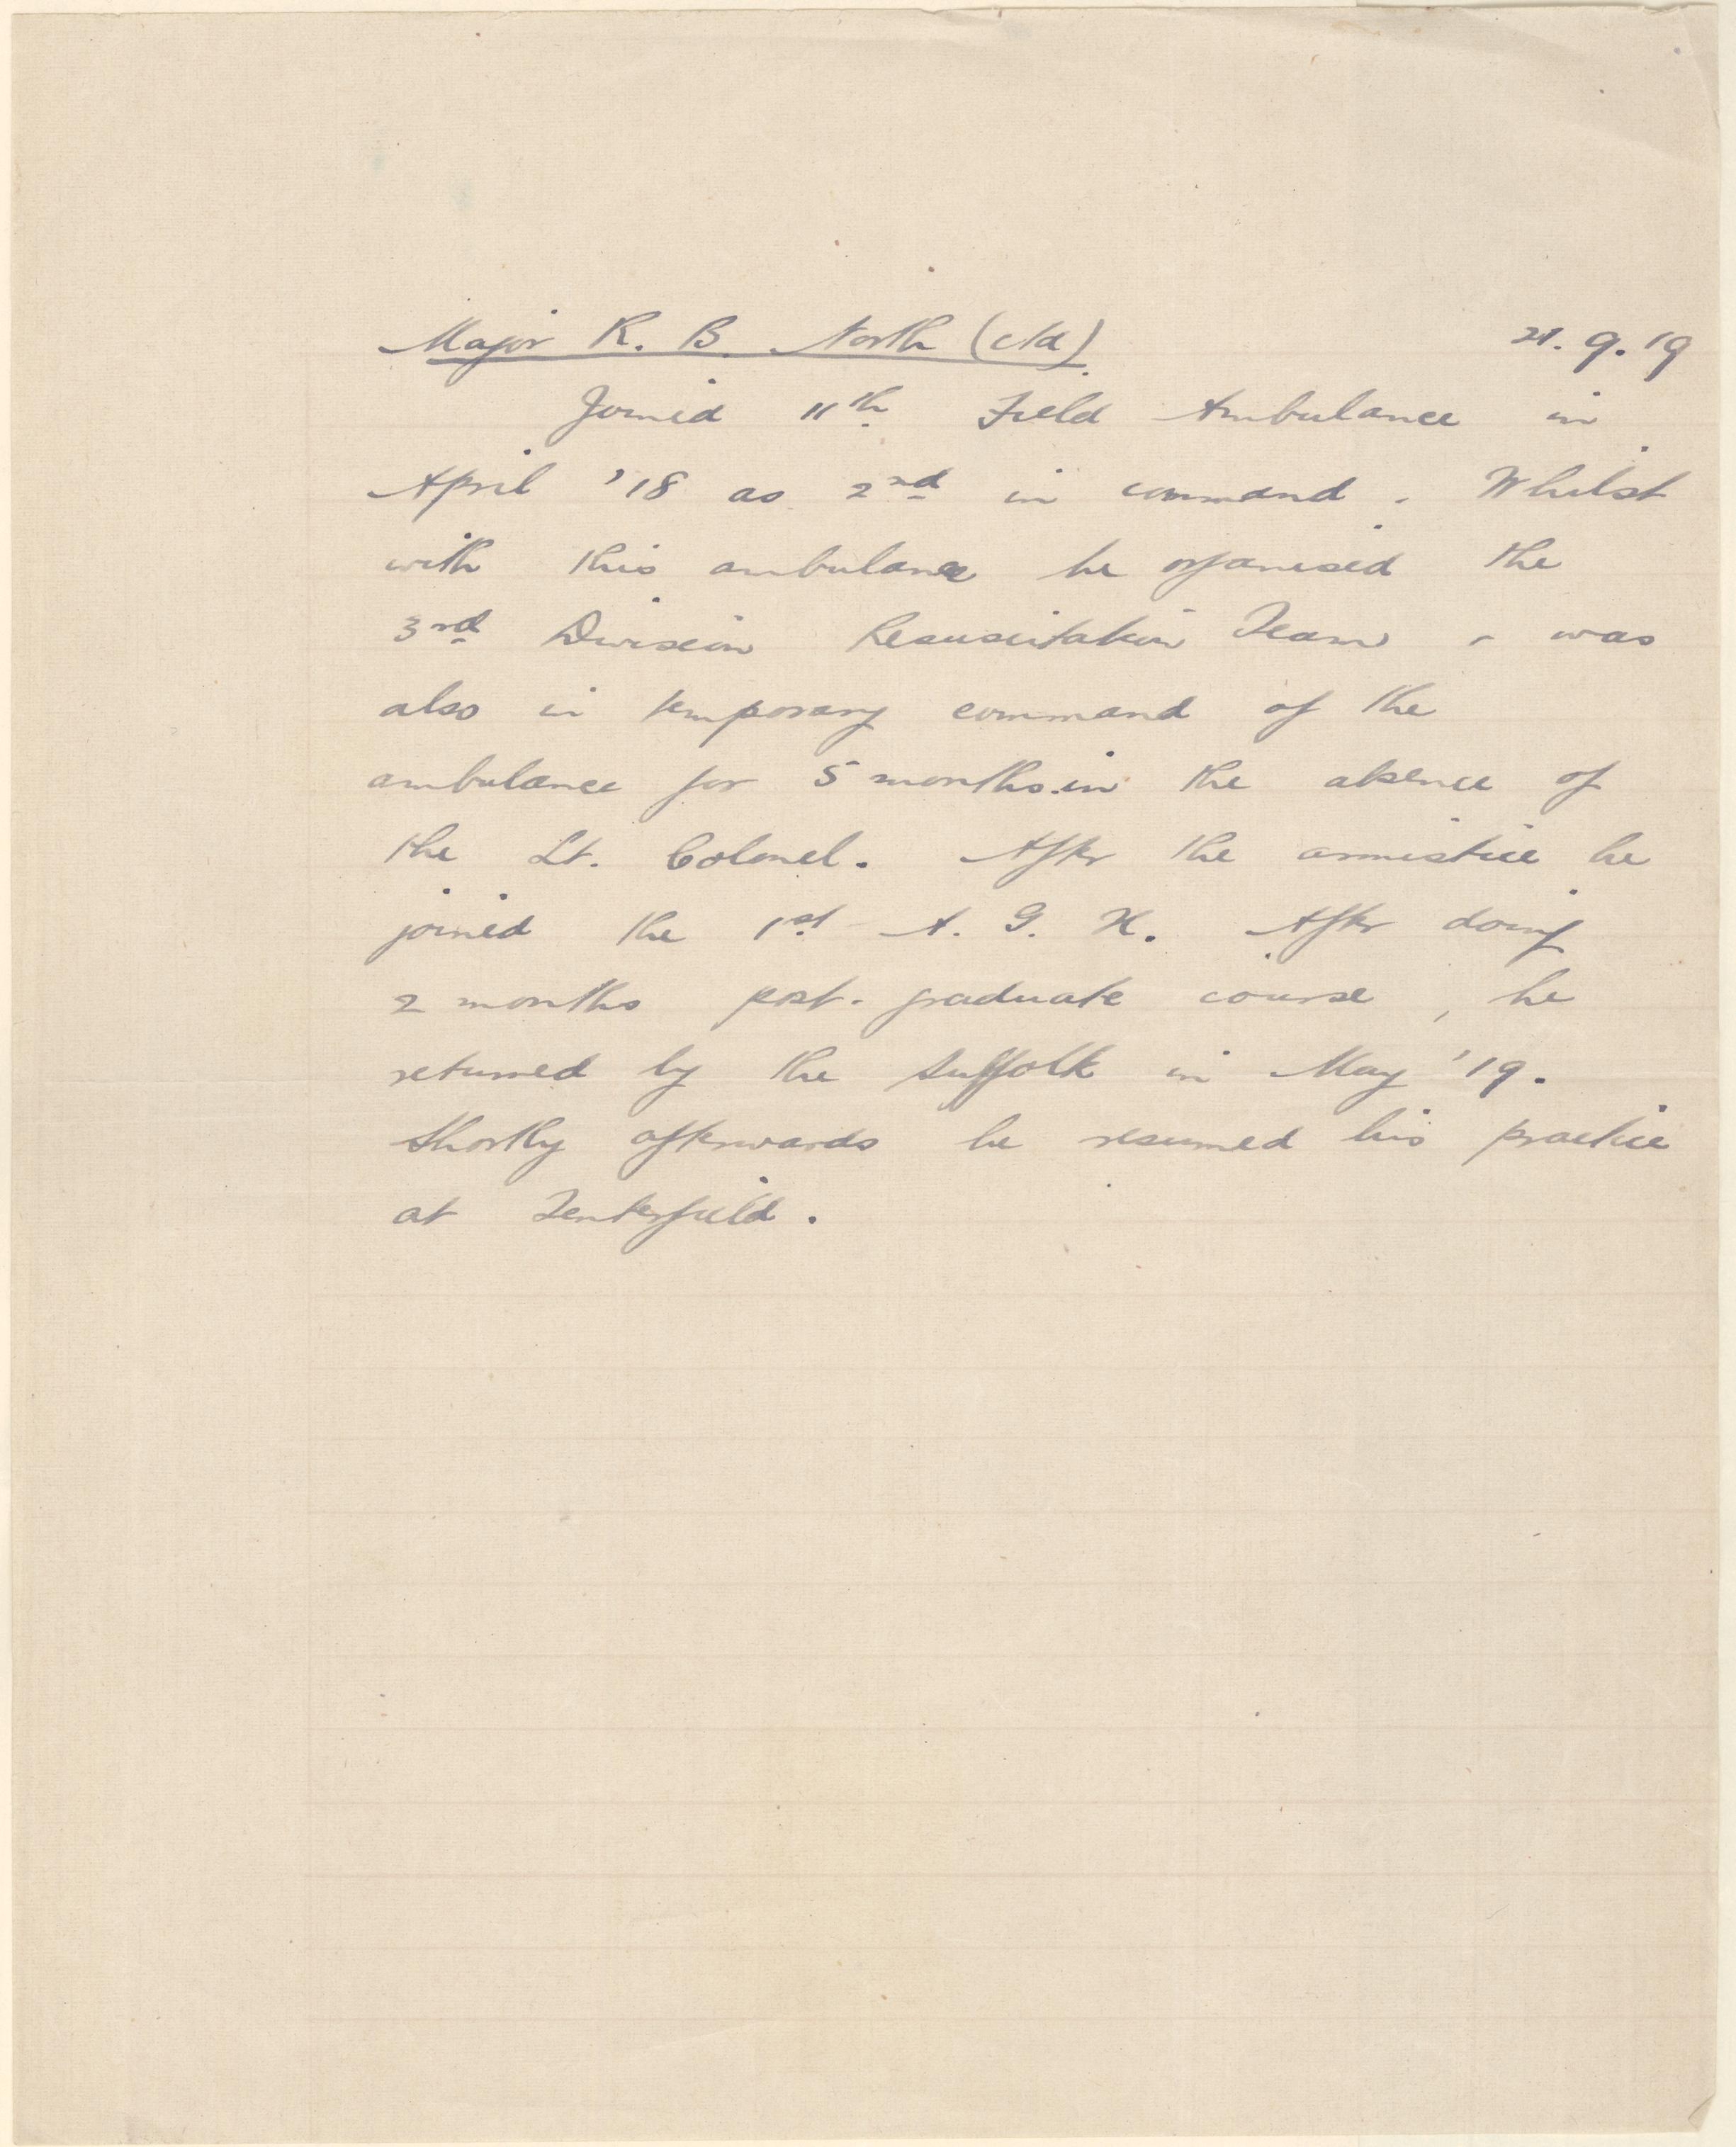 Major R. B. North (ctd) 21. 9. 19
Joined 11th Field Ambulance in
April '18 as 2nd in command. Whilst
with this ambulance he organised the
3rd Division Resuscitation Team & was
also in temporary command of the
ambulance for 5 months in the absence of
the Lt. Colonel. After the armistice he
joined the 1st A. G. H. After doing
2 months post-graduate course, he
returned by the Suffolk in May '19.
Shortly afterwards he resumed his practice
at Tenterfield.